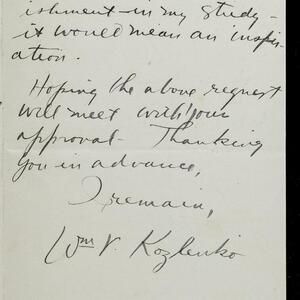 ishment—in my study—
it would mean an inspir-
ation.
Hoping the above request
will meet with your
approval. Thanking
you in advance,
I remain,
Wm V. Kozlenko